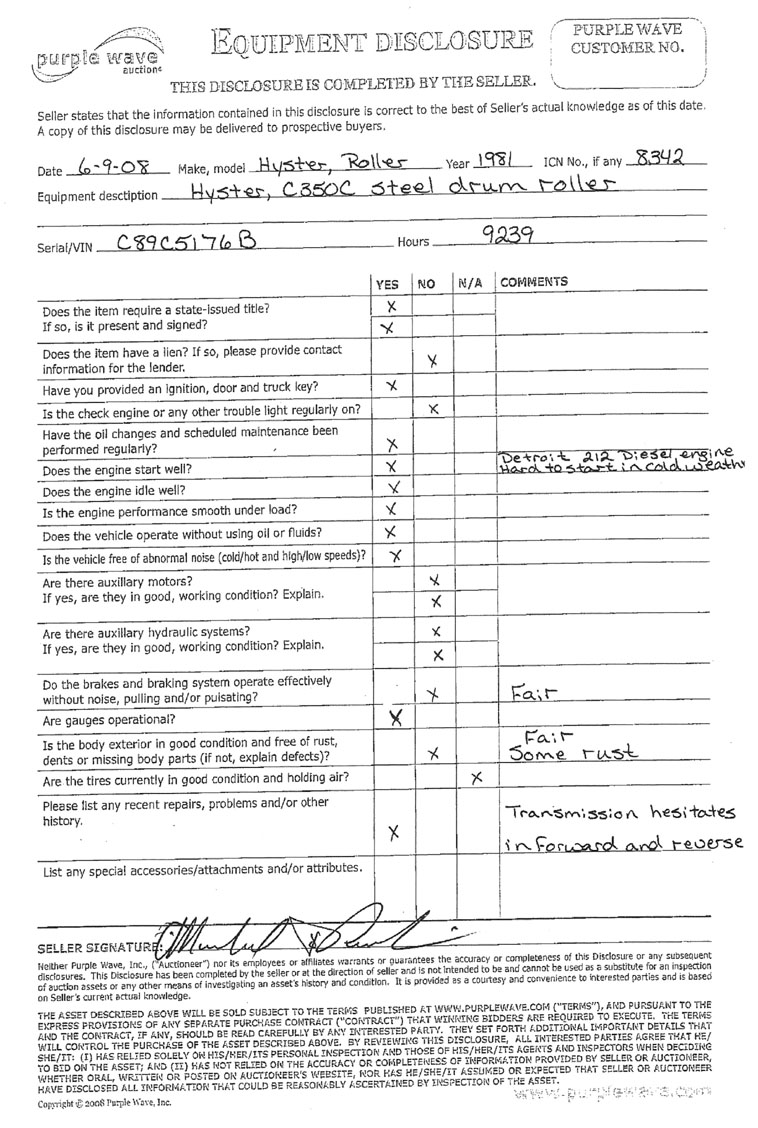 purple wave
auction®
EQUIPMENT DISCLOSURE
PURPLE WAVE
CUSTOMER NO.
THIS DISCLOSURE IS COMPLETED BY THE SELLER.
Seller states that the information contained in this disclosure is correct to the best of Seller's actual knowledge as of this date.
A copy of this disclosure may be delivered to prospective buyers.
Date 6-9-08 Make, model Hyster, Roller Year 1981 ICN No., if any 8342
Equipment desctiption Hyster, C350C steel drum roller
Serial/VIN C89C5176B Hours 9239
YES NO N/A COMMENTS
Does the item require a state-issued title? X
If so, is it present and signed? X
Does the item have a lien? If so, please provide contact
information for the lender. X
Have you provided an ignition, door and truck key? X
Is the check engine or any other trouble light regularly on? X
Have the oil changes and scheduled maintenance been
performed regularly? X
Detroit 212 Diesel engine
Does the engine start well? X Hard to start in cold weath
Does the engine idle well? X
Is the engine performance smooth under load? X
Does the vehicle operate without using oil or fluids? X
Is the vehicle free of abnormal noise (cold/hot and high/low speeds)? X
Are there auxillary motors? X
If yes, are they in good, working condition? Explain. X
Are there auxillary hydraulic systems? X
If yes, are they in good, working condition? Explain. X
Do the brakes and braking system operate effectively
without noise, pulling and/or pulsating? X Fair
Are gauges operational? X
Is the body exterior in good condition and free of rust, Fair
dents or missing body parts (if not, explain defects)? X Some rust
Are the tires currently in good condition and holding air? X
Please list any recent repairs, problems and/or other Transmission hesitates
history. X in forward and reverse
List any special accessories/attachments and/or attributes.
SELLER SIGNATURE:
Neither Purple Wave, Inc., ("Auctioneer") nor its employees or affiliates warrants or guarantees the accuracy or completeness of this Disclosure or any subsequent
disclosures. This Disclosure has been completed by the seller or at the direction of seller and is not intended to be and cannot be used as a substitute for an inspection
of auction assets or any other means of investigating an asset's history and condition. It is provided as a courtesy and convenience to interested parties and is based
on Seller's current actual knowledge.
THE ASSET DESCRIBED ABOVE WILL BE SOLD SUBJECT TO THE TERMS PUBLISHED AT WWW.PURPLEWAVE.COM ("TERMS"), AND PURSUANT TO THE
EXPRESS PROVISIONS OF ANY SEPARATE PURCHASE CONTRACT ("CONTRACT") THAT WINNING BIDDERS ARE REQUIRED TO EXECUTE. THE TERMS
AND THE CONTRACT, IF ANY, SHOULD BE READ CAREFULLY BY ANY INTERESTED PARTY. THEY SET FORTH ADDITIONAL IMPORTANT DETAILS THAT
WILL CONTROL THE PURCHASE OF THE ASSET DESCRIBED ABOVE. BY REVIEWING THIS DISCLOSURE, ALL INTERESTED PARTIES AGREE THAT HE/
SHE/IT: (I) HAS RELIED SOLELY ON HIS/HER/ITS PERSONAL INSPECTION AND THOSE OF HIS/HER/ITS AGENTS AND INSPECTORS WHEN DECIDING
TO BID ON THE ASSET; AND (II) HAS NOT RELIED ON THE ACCURACY OR COMPLETENESS OF INFORMATION PROVIDED BY SELLER OR AUCTIONEER,
WHETHER ORAL, WRITTEN OR POSTED ON AUCTIONEER'S WEBSITE, NOR HAS HE/SHE/IT ASSUMED OR EXPECTED THAT SELLER OR AUCTIONEER
HAVE DISCLOSED ALL INFORMATION THAT COULD BE REASONABLY ASCERTAINED BY INSPECTION OF THE ASSET.
www.purplewave.com
Copyright © 2008 Purple Wave, Inc.